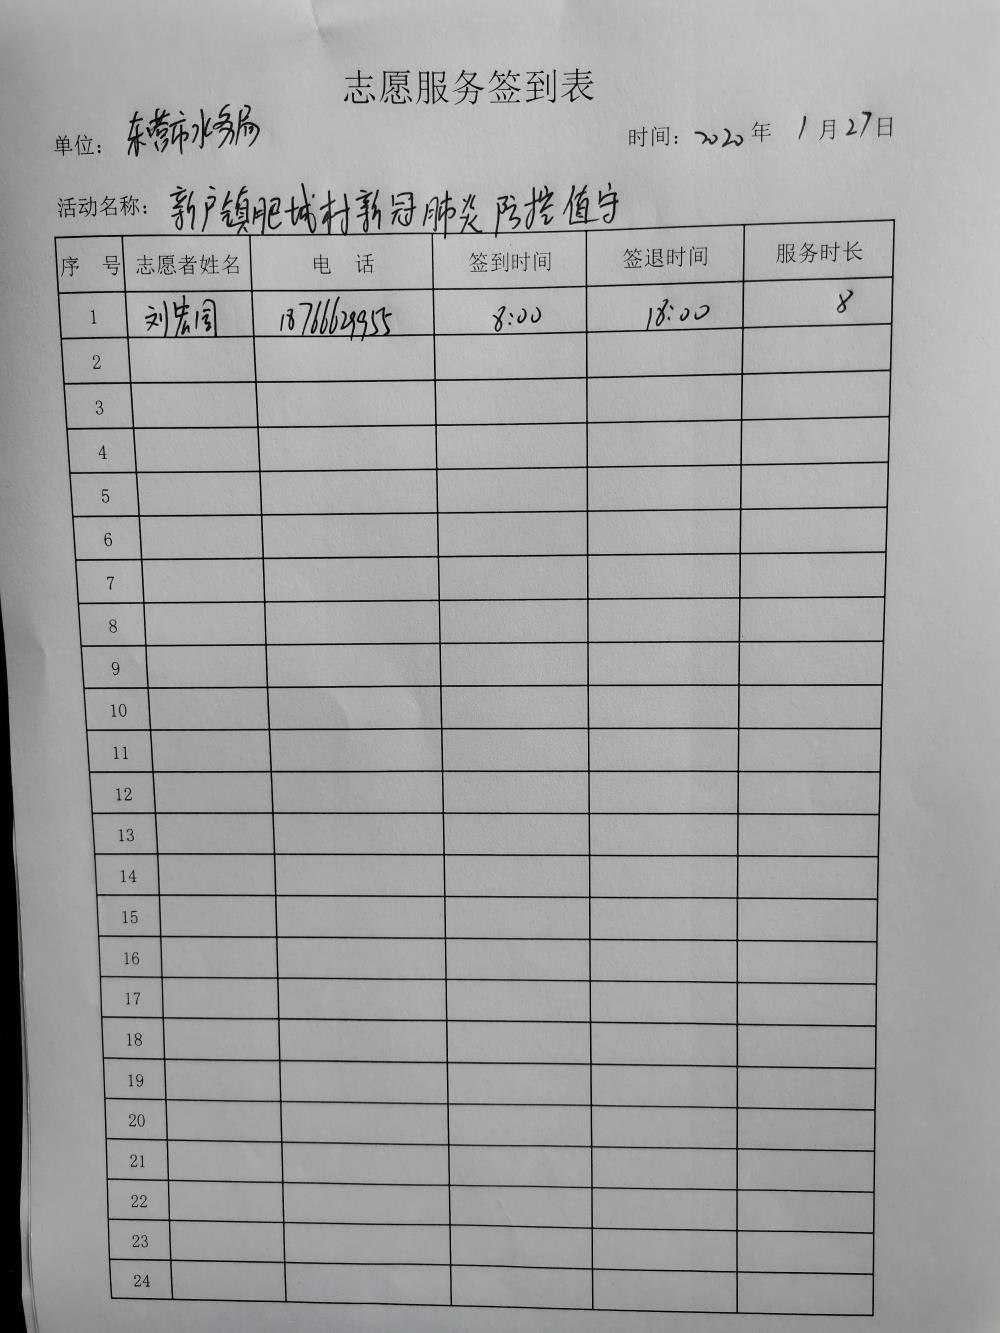 志愿服务签到表
单位：东营市水务局 时间：2020年 1月27日
活动名称：新户镇肥城村新冠肺炎防控值守
序号 志愿者姓名 电话 签到时间 签退时间 服务时长
1 刘宏周 18766629955 8:00 18:00 8
2
3
4
5
6
7
8
9
10
11
12
13
14
15
16
17
18
19
20
21
22
23
24